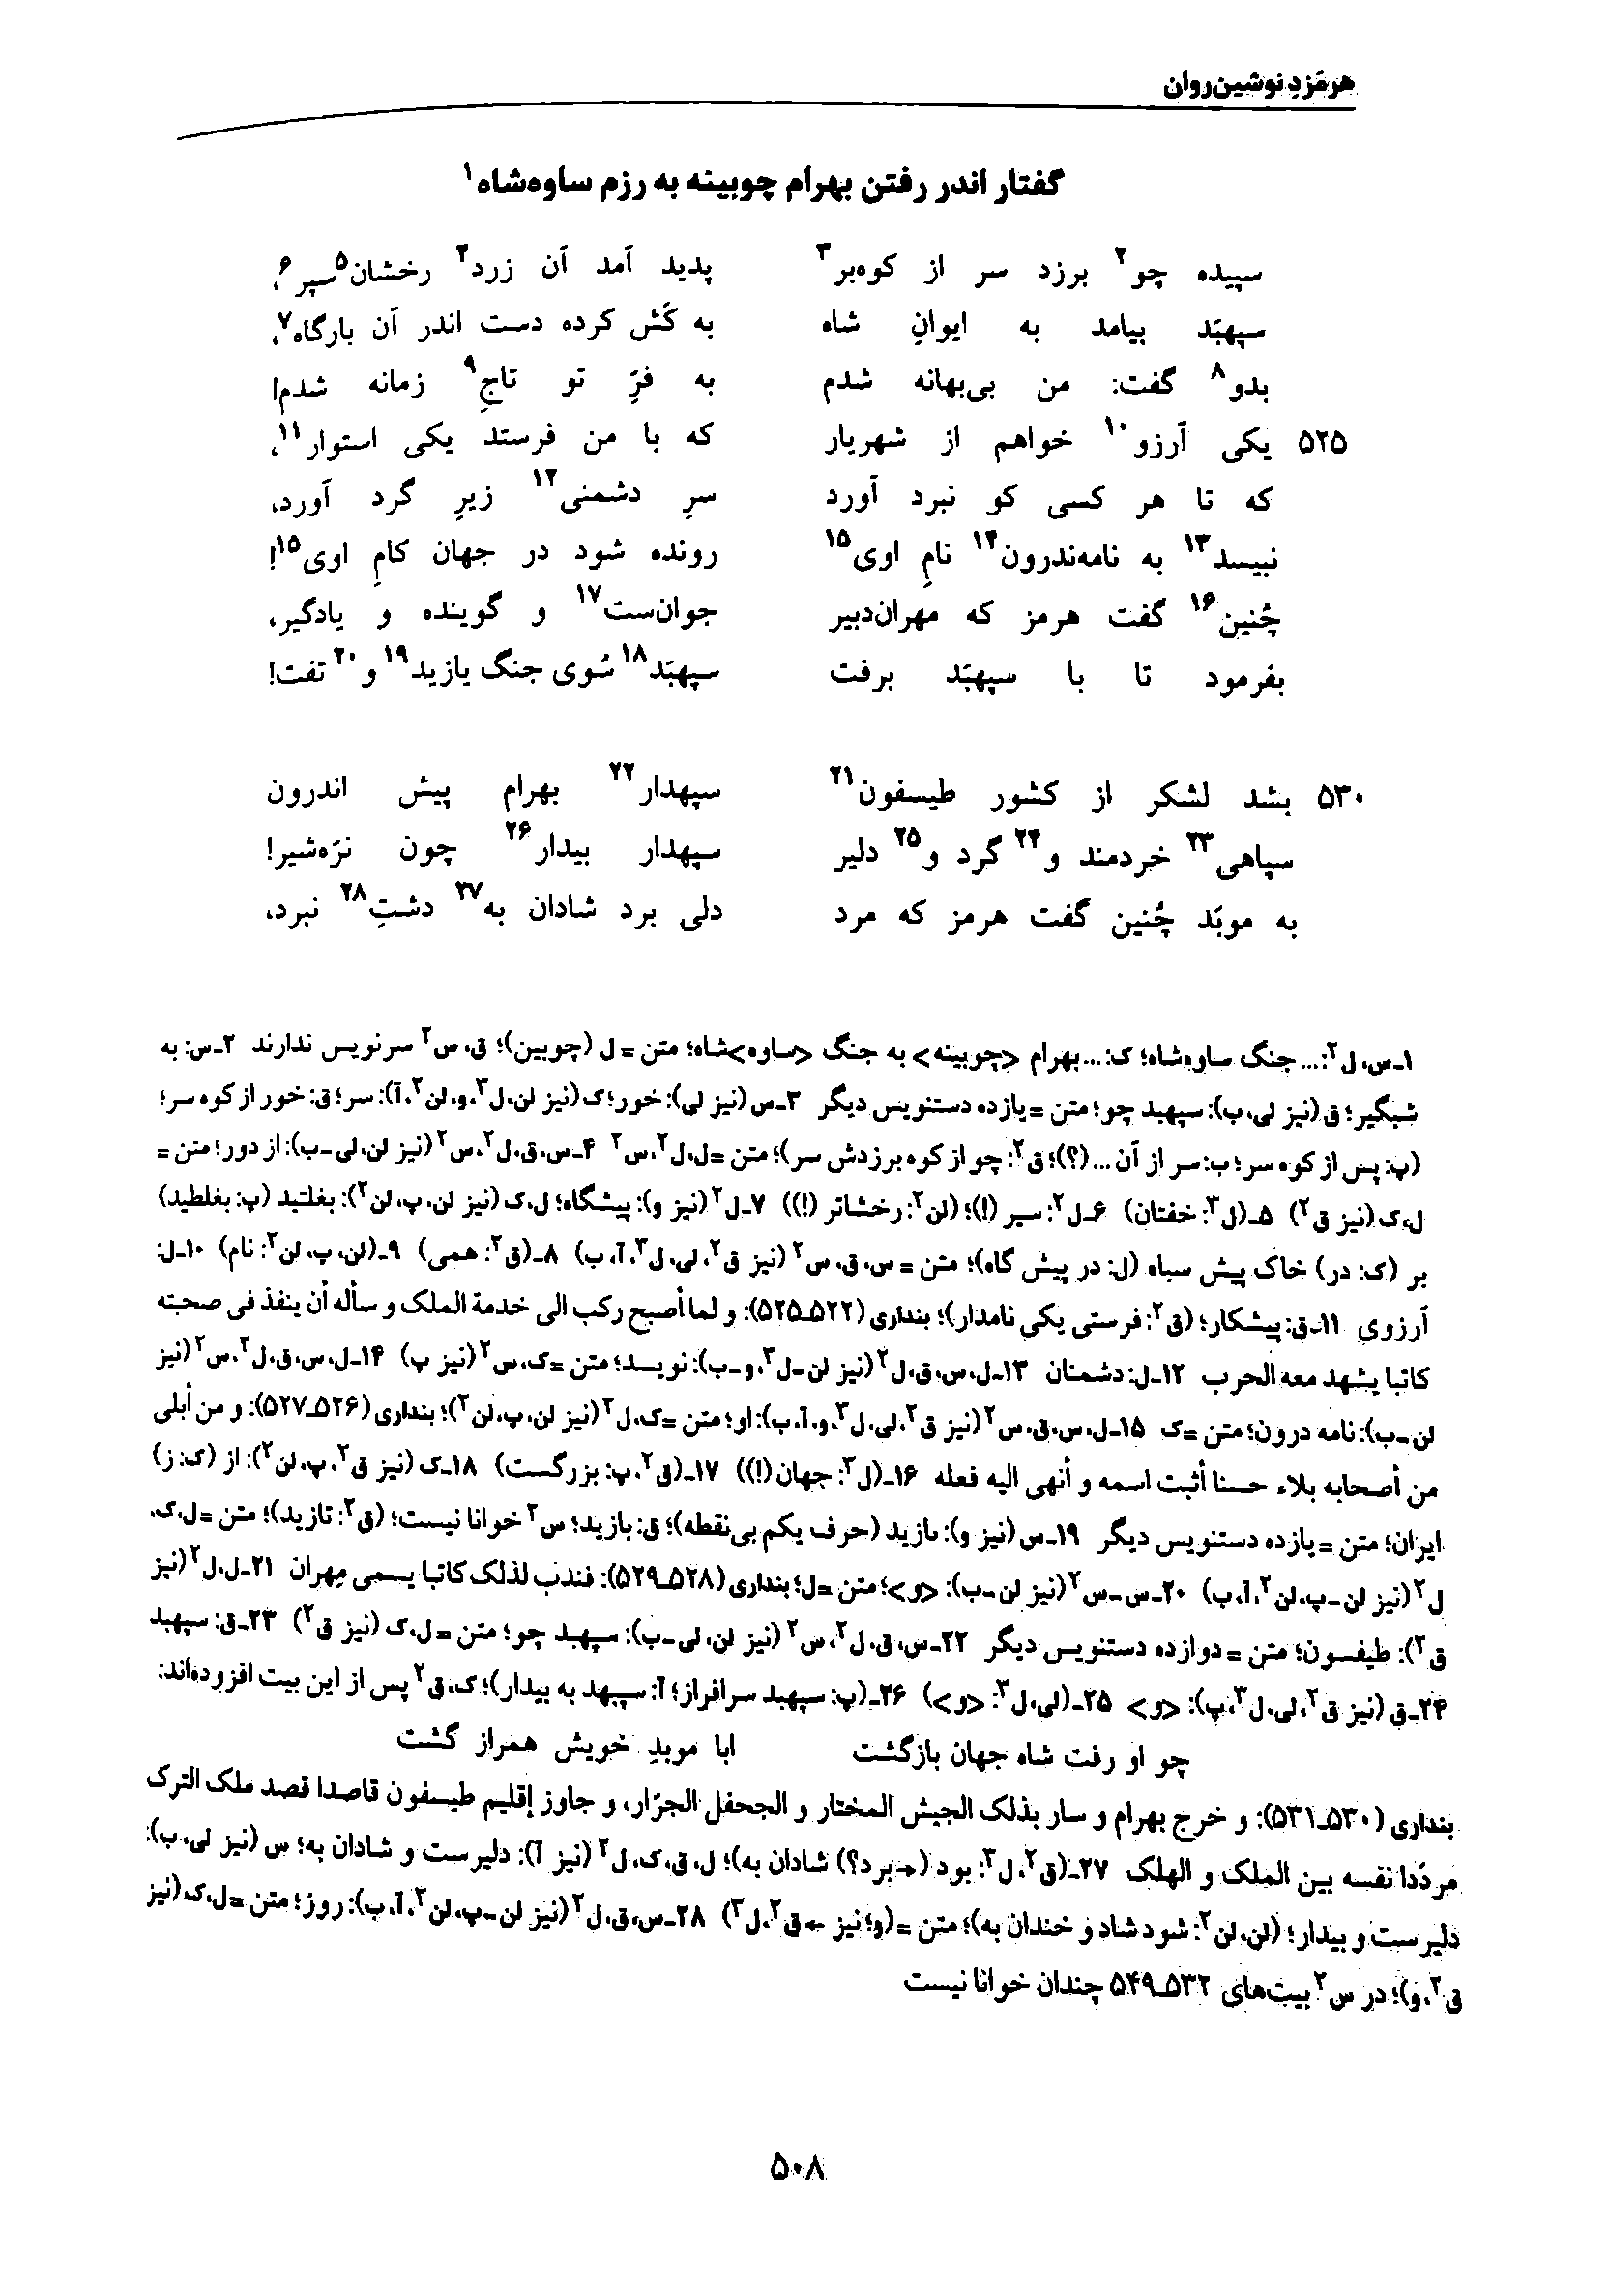 هرمَزدِ نوشین‌روان
گفتار اندر رفتن بهرام چوبینه به رزم ساوه‌شاه۱
سپیده چو۲ برزد سر از کوه‌بر۳ پدید آمد آن زرد۴ رخشان۵ سپر۶،
سپهبَد بیامد به ایوانِ شاه به کَش کرده دست اندر آن بارگاه۷،
بدو۸ گفت: من بی‌بهانه شدم به فرِّ تو تاجِ۹ زمانه شدم!
۵۲۵ یکی آرزو۱۰ خواهم از شهریار که با من فرستد یکی استوار۱۱،
که تا هر کسی کو نبرد آورد سرِ دشمنی۱۲ زیرِ گرد آورد،
نبیسد۱۳ به نامه‌ندرون۱۴ نامِ اوی۱۵ رونده شود در جهان کامِ اوی۱۵!
چُنین۱۶ گفت هرمز که مهران‌دبیر جوان‌ست۱۷ و گوینده و یادگیر،
بفرمود تا با سپهبَد برفت سپهبَد۱۸ سُوی جنگ یازید۱۹ و۲۰ تفت!
۵۳۰ بشد لشکر از کشور طیسفون۲۱ سپهدار۲۲ بهرام پیش اندرون
سپاهی۲۳ خردمند و۲۴ گرد و۲۵ دلیر سپهدار بیدار۲۶ چون نرّه‌شیر!
به موبَد چُنین گفت هرمز که مرد دلی برد شادان به۲۷ دشتِ۲۸ نبرد،
۱ـ س، ل۲: ... جنگ ساوه‌شاه؛ ک: ... بهرام <چوبینه> به جنگ <ساوه>شاه؛ متن = ل (چوبین)؛ ق، س۲ سرنویس ندارند ۲ـ س: به
شبگیر؛ ق (نیز لی، ب): سپهبد چو؛ متن = یازده دستنویس دیگر ۳ـ س (نیز لی): خور؛ ک (نیز لن، ل۳، و، لن۲، آ): سر؛ ق: خور از کوه سر؛
(پ: پس از کوه سر؛ ب: سر از آن ... (؟)؛ ق۲: چو از کوه برزدش سر)؛ متن = ل، ل۲، س۲ ۴ـ س، ق، ل۲، س۲ (نیز لن، لی ـ ب): از دور؛ متن =
ل، ک (نیز ق۲) ۵ـ (ل۳: خفتان) ۶ـ ل۲: سیر (!)؛ (لن۲: رخشاتر (!)) ۷ـ ل۲ (نیز و): پیشگاه؛ ل، ک (نیز لن، پ، لن۲): بغلتید (پ: بغلطید)
بر (ک: در) خاک پیش سپاه (ل: در پیش گاه)؛ متن = س، ق، س۲ (نیز ق۲، لی، ل۳، آ، ب) ۸ـ (ق۲: همی) ۹ـ (لن، پ، لن۲: نام) ۱۰ـ ل:
آرزوی ۱۱ـ ق: پیشکار؛ (ق۲: فرستی یکی نامدار)؛ بنداری (۵۲۲ـ۵۲۵): و لما أصبح رکب الی خدمة الملک و سأله أن ینفذ فی صحبته
کاتبا یشهد معه الحرب ۱۲ـ ل: دشمنان ۱۳ـ ل، س، ق، ل۲ (نیز لن ـ ل۳، و ـ ب): نویسد؛ متن = ک، س۲ (نیز پ) ۱۴ـ ل، س، ق، ل۲، س۲ (نیز
لن ـ ب): نامه درون؛ متن = ک ۱۵ـ ل، س، ق، س۲ (نیز ق۲، لی، ل۳، و، آ، ب): او؛ متن = ک، ل۲ (نیز لن، پ، لن۲)؛ بنداری (۵۲۶ـ۵۲۷): و من أبلی
من أصحابه بلاء حسنا أثبت اسمه و أنهی الیه فعله ۱۶ـ (ل۳: جهان (!)) ۱۷ـ (ق۲، پ: بزرگست) ۱۸ـ ک (نیز ق۲، پ، لن۲): از (ک: ز)
ایران؛ متن = یازده دستنویس دیگر ۱۹ـ س (نیز و): ٮازید (حرف یکم بی‌نقطه)؛ ق: بازید؛ س۲ خوانا نیست؛ (ق۲: تازید)؛ متن = ل، ک،
ل۲ (نیز لن ـ پ، لن۲، آ، ب) ۲۰ـ س ـ س۲ (نیز لن ـ ب): <و>؛ متن = ل؛ بنداری (۵۲۸ـ۵۲۹): فندب لذلک کاتبا یسمی مِهران ۲۱ـ ل، ل۲ (نیز
ق۲): طیفسون؛ متن = دوازده دستنویس دیگر ۲۲ـ س، ق، ل۲، س۲ (نیز لن، لی ـ ب): سپهبد چو؛ متن = ل، ک (نیز ق۲) ۲۳ـ ق: سپهبد
۲۴ـ ق (نیز ق۲، لی، ل۳، پ): <و> ۲۵ـ (لی، ل۳: <و>) ۲۶ـ (پ: سپهبد سرافراز؛ آ: سپبهد به بیدار)؛ ک، ق۲ پس از این بیت افزوده‌اند:
چو او رفت شاه جهان بازگشت ابا موبدِ خویش همراز گشت
بنداری (۵۳۰ـ۵۳۱): و خرج بهرام و سار بذلک الجیش المختار و الجحفل الجرّار، و جاوز إقلیم طیسفون قاصدا قصد ملک الترک
مردّدا نفسه بین الملک و الهلک ۲۷ـ (ق۲، ل۳: بود (← برد؟) شادان به)؛ ل، ق، ک، ل۲ (نیز آ): دلیرست و شادان به؛ س (نیز لی، ب):
دلیرست و بیدار؛ (لن، لن۲: شود شاد و خندان به)؛ متن = (و؛ نیز ← ق۲، ل۳) ۲۸ـ س، ق، ل۲ (نیز لن ـ پ، لن۲، آ، ب): روز؛ متن = ل، ک (نیز
ق۲، و)؛ در س۲ بیت‌های ۵۳۲ـ۵۴۹ چندان خوانا نیست
۵۰۸